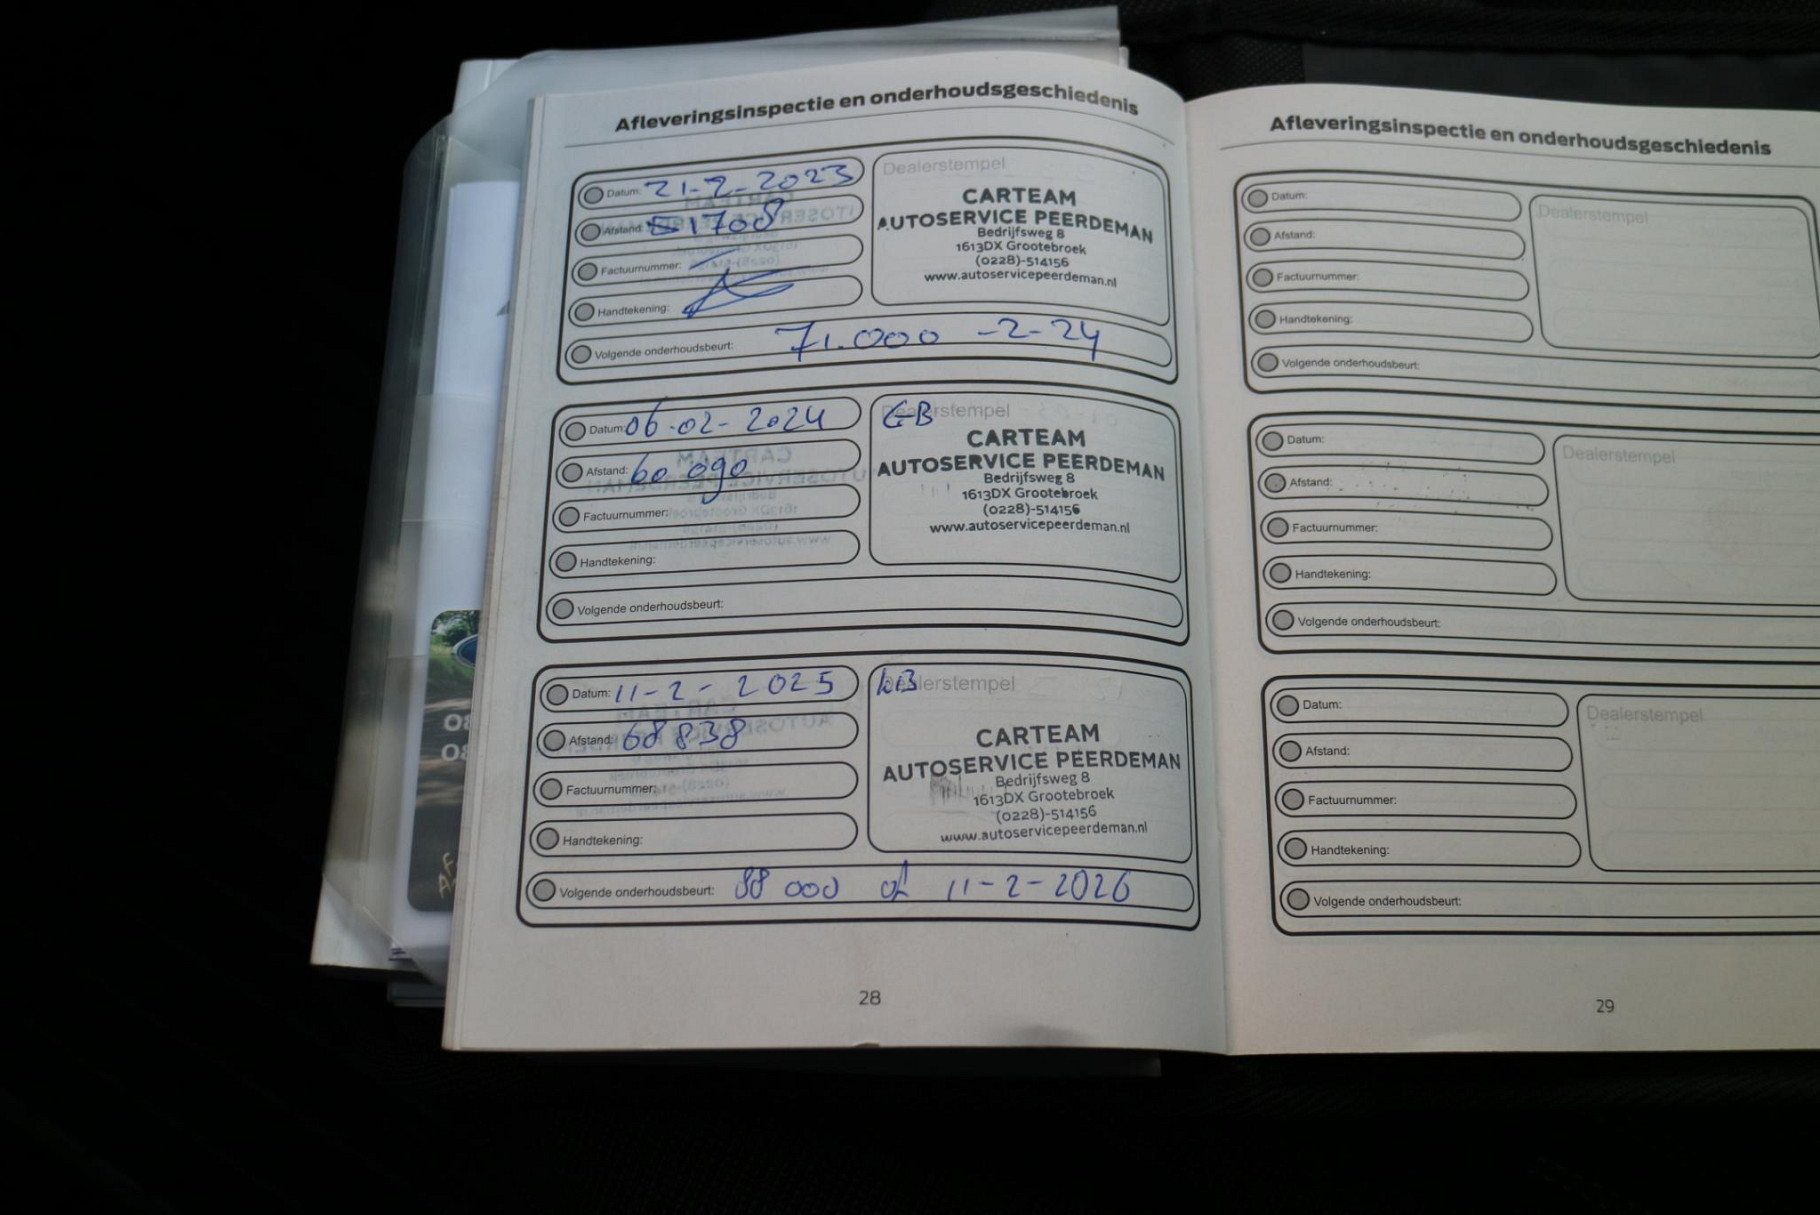 Afleveringsinspectie en onderhoudsgeschiedenis
Datum: 21-2-2023
Afstand: 51708
Factuurnummer:
Handtekening:
Volgende onderhoudsbeurt: 71.000 -2-24
Dealerstempel
CARTEAM
AUTOSERVICE PEERDEMAN
Bedrijfsweg 8
1613DX Grootebroek
(0228)-514156
www.autoservicepeerdeman.nl
Datum: 06-02-2024
Afstand: 60 090
Factuurnummer:
Handtekening:
Volgende onderhoudsbeurt:
GB
Dealerstempel
CARTEAM
AUTOSERVICE PEERDEMAN
Bedrijfsweg 8
1613DX Grootebroek
(0228)-514156
www.autoservicepeerdeman.nl
Datum: 11-2-2025
Afstand: 68 838
Factuurnummer:
Handtekening:
Volgende onderhoudsbeurt: 88 000 of 11-2-2026
Dealerstempel
CARTEAM
AUTOSERVICE PEERDEMAN
Bedrijfsweg 8
1613DX Grootebroek
(0228)-514156
www.autoservicepeerdeman.nl
28
Afleveringsinspectie en onderhoudsgeschiedenis
Datum:
Afstand:
Factuurnummer:
Handtekening:
Volgende onderhoudsbeurt:
Dealerstempel
Datum:
Afstand:
Factuurnummer:
Handtekening:
Volgende onderhoudsbeurt:
Dealerstempel
Datum:
Afstand:
Factuurnummer:
Handtekening:
Volgende onderhoudsbeurt:
Dealerstempel
29